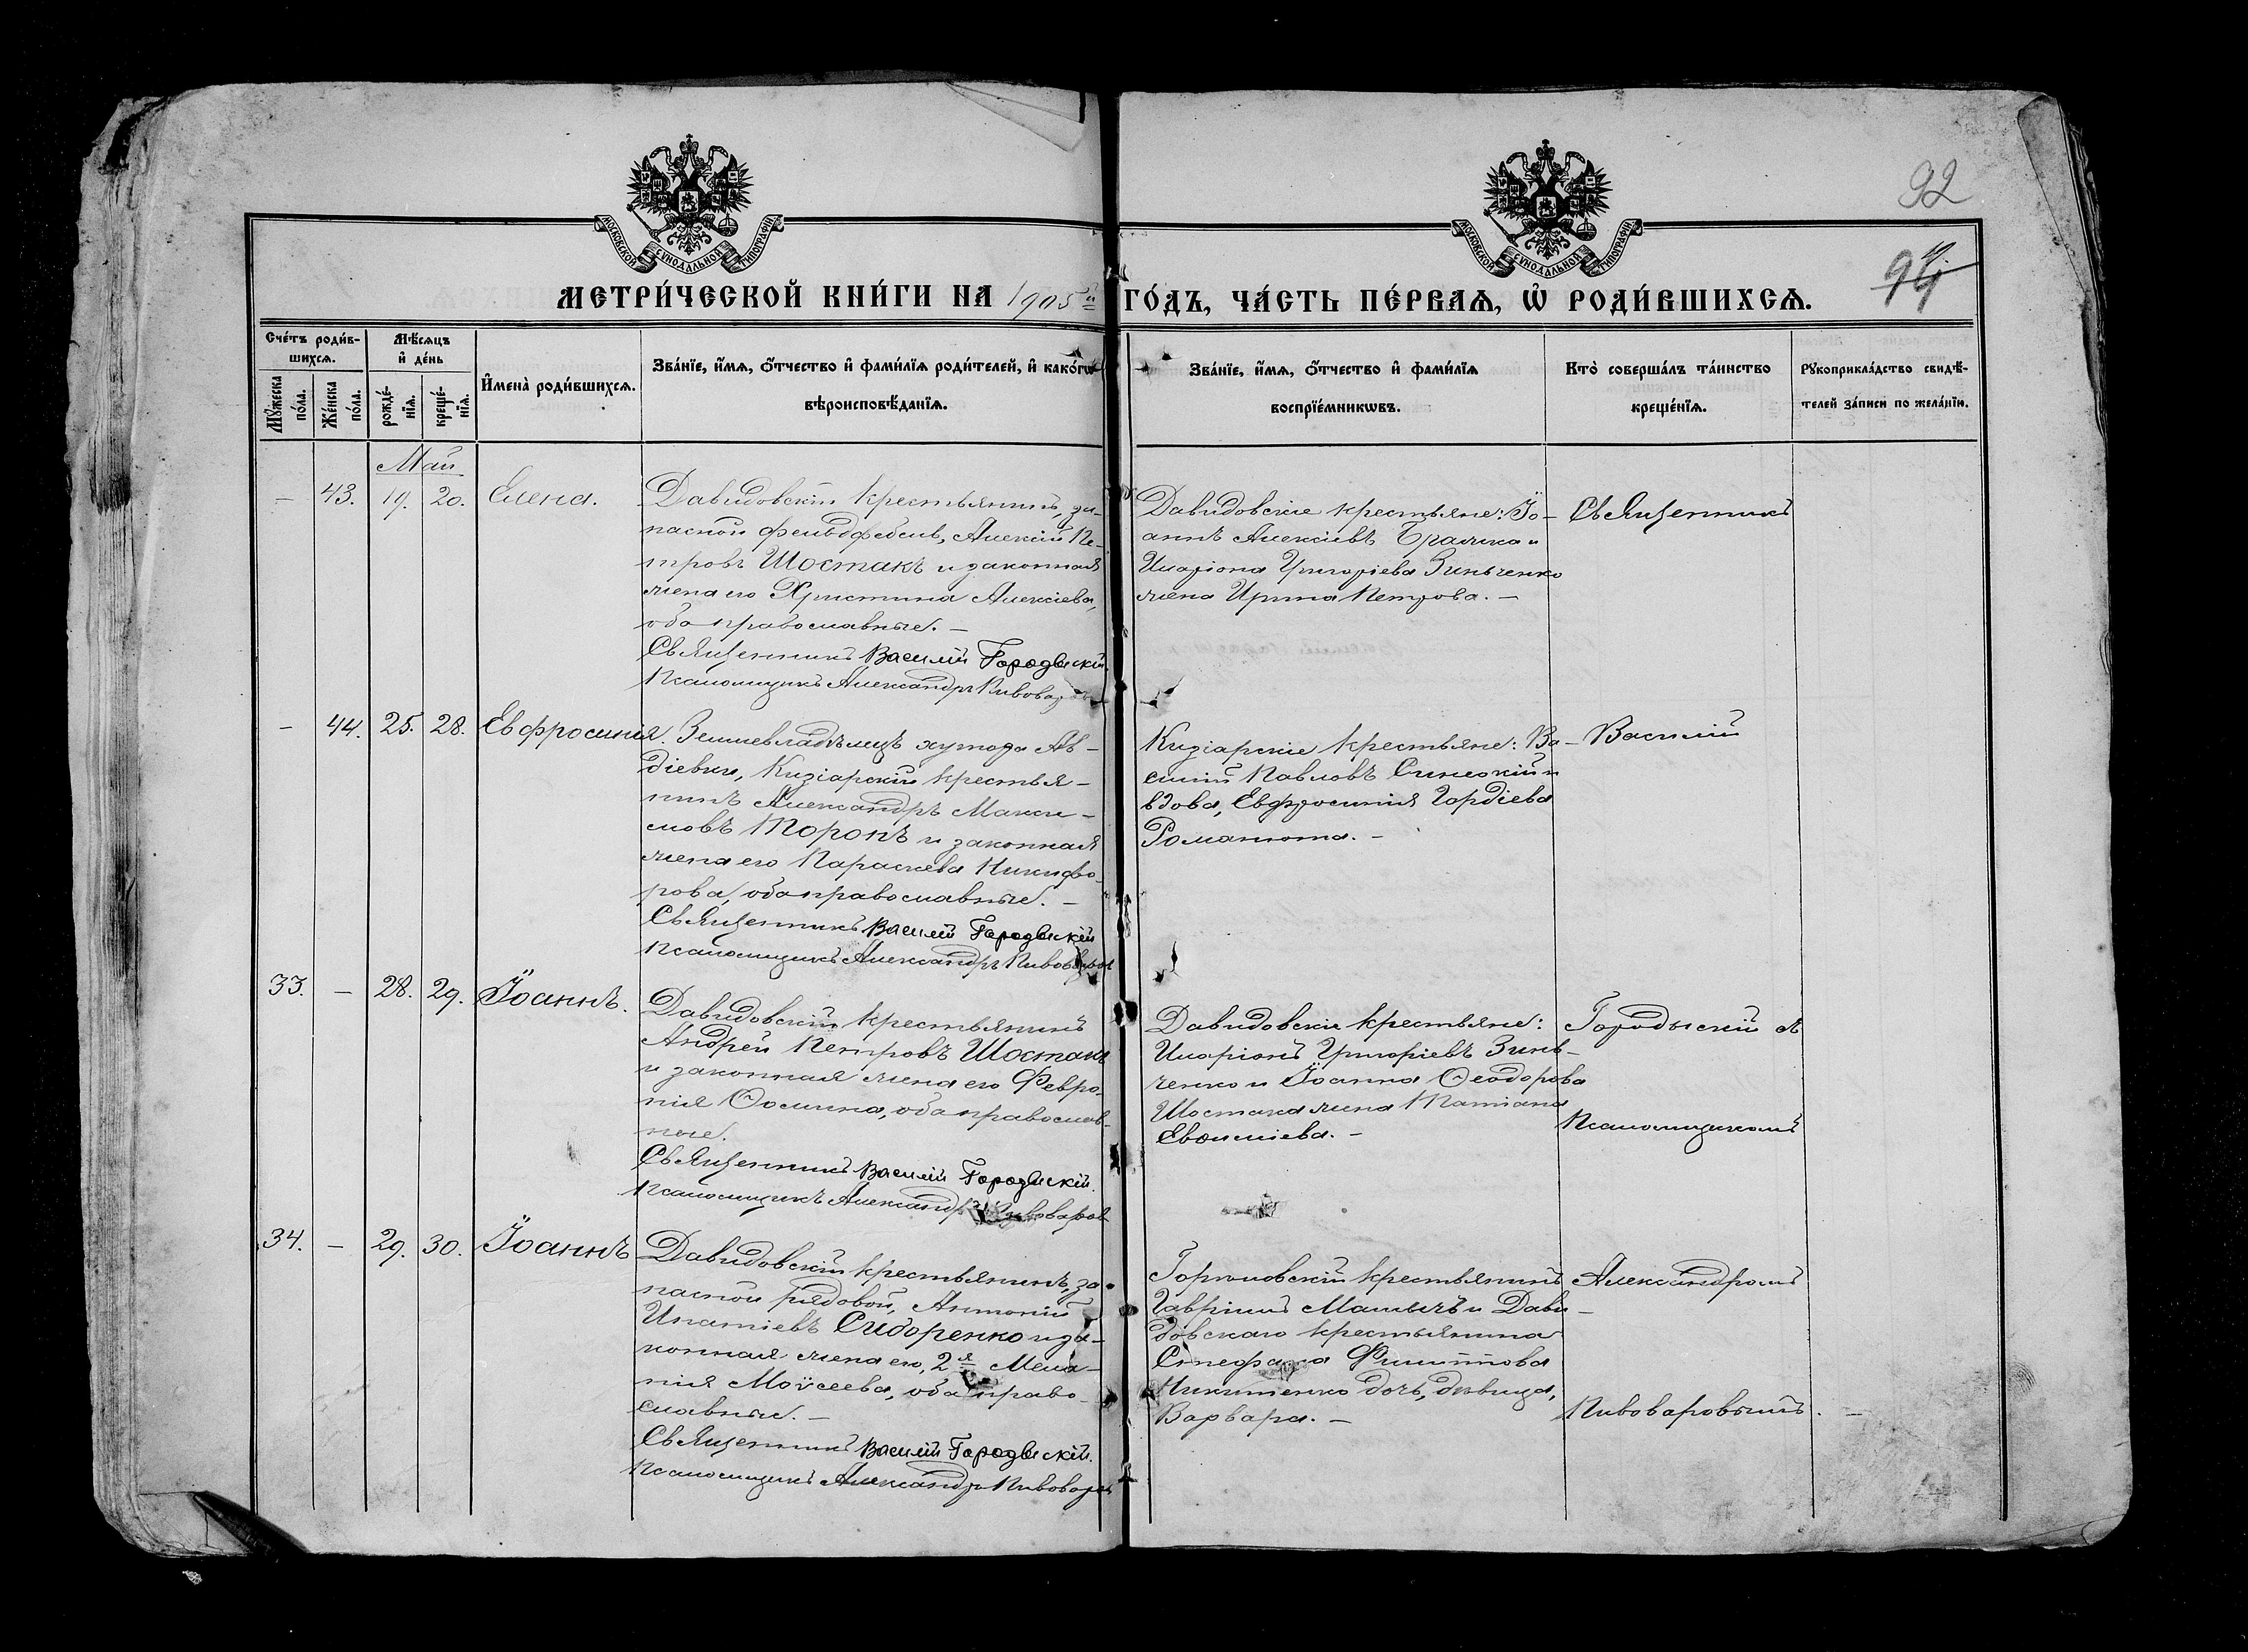 92
94
МОСКОВСКОЙ СѴНОДАЛЬНОЙ ТИПОГРАФІИ
МОСКОВСКОЙ СѴНОДАЛЬНОЙ ТИПОГРАФІИ
МЕТРИ́ЧЕСКОЙ КНИ́ГИ НА 1905й ГО́ДЪ, ЧА́СТЬ ПЕ́РВАѦ, Ѡ҆ РОДИ́ВШИХСѦ.
Сче́тъ роди́в-
шихсѧ.
Мꙋ́жеска по́ла.
Же́нска по́ла.
Мѣ́сѧцъ
и҆ де́нь
рожде́-
нїѧ.
креще́-
нїѧ.
И҆мена̀ роди́вшихсѧ.
Зва́нїе, и҆́мѧ, ѻ҆́тчество и҆ фами́лїѧ роди́телей, и҆ како́гѡ
вѣроисповѣ́данїѧ.
Зва́нїе, и҆́мѧ, ѻ҆́тчество и҆ фами́лїѧ
воспрїе́мникѡвъ.
Кто̀ соверша́лъ та́инство
креще́нїѧ.
Рꙋкоприкла́дство свидѣ́-
телей за́писи по жела́нїю.
Май
— 43. 19. 20. Елена.
Давидовскій крестьянинъ, за-
пасной фельдфебель, Алексій Пе-
тровъ Шостакъ и законная
жена его Христина Алексіева,
оба православные. —
Священникъ Василій Городыскій.
Псаломщикъ Александръ Пивоваровъ
Давидовскіе крестьяне: Іо-
аннъ Алексіевъ и
Иларіона Григоріева Зинченко
жена Ирина Петрова. —
— 44. 25. 28. Евфросинія.
Землевладѣлецъ хутора Ав-
діевки, Кизіарскій крестья-
нинъ Александръ Макси-
мовъ Моронъ и законная
жена его Параскева Никифо-
рова, оба православные. —
Священникъ Василій Городыскій
Псаломщикъ Александръ Пивоваровъ
Кизіарскіе крестьяне: Ва-
силій Павловъ и
вдова, Евфросинія Гордіева
Романюта. —
33. — 28. 29. Іоаннъ.
Давидовскій крестьянинъ
Андрей Петровъ Шостакъ
и законная жена его Февро-
нія Ѳомина, оба православ-
ные.
Священникъ Василій Городыскій.
Псаломщикъ Александръ Пивоваровъ
Давидовскіе крестьяне:
Иларіонъ Григоріевъ Зинь-
ченко и Іоанна Ѳеодорова
Шостака жена Татіана
Евѳиміева. —
34. — 29. 30. Іоаннъ
Давидовскій крестьянинъ, за-
пасной рядовой, Антоній
Ипатіевъ Сидоренко и за-
конная жена его, 2я Мела-
нія Моѵсеева, оба право-
славные. —
Священникъ Василій Городыскій.
Псаломщикъ Александръ Пивоваровъ
крестьянинъ
Гавріилъ и Дави-
довскаго крестьянина
Стефана Филиппова
Никитенко дочь, дѣвица,
Варвара. —
Священникъ
Василій
Городыскій съ
Псаломщикомъ
Александромъ
Пивоваровымъ. —